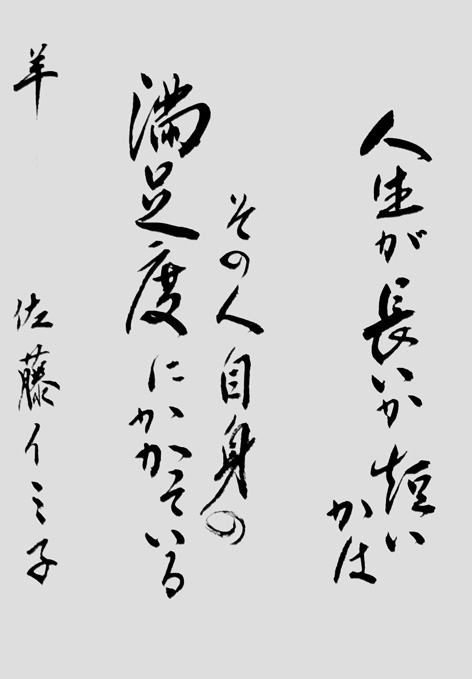 人生が長いか短い
かは
その人自身の
満足度にかかっている
羊 佐藤イミ子